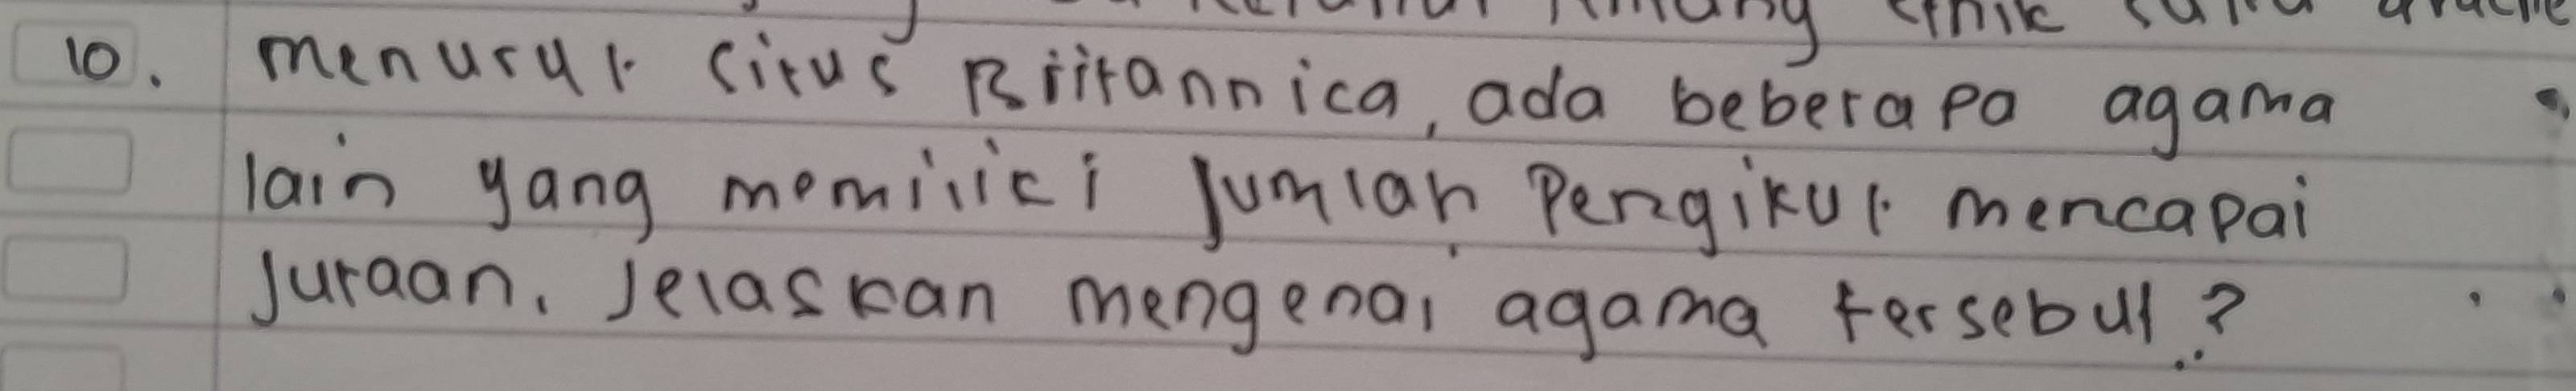 etnik
10. menurut situs Briitannica, ada beberapa agama
lain yang memiliki jumlah Pengikut mencapai
jutaan. Jelaskan mengenai agama tersebut?